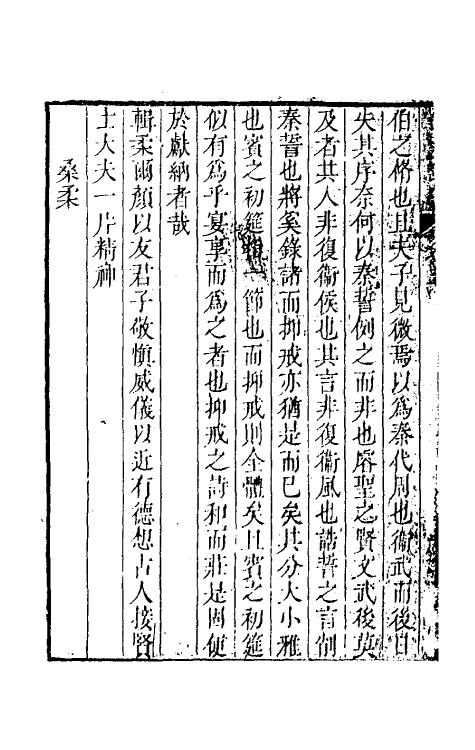 伯之脩也且夫子見微焉以爲秦代周也衞武而後日
失其序奈何以秦誓例之而非也睿聖之賢文武後莫
及者其人非復衞侯也其言非復衞風也誥誓之言削
秦誓也將奚錄諸而抑戒亦猶是而已矣其分大小雅
也賓之初筵一節也而抑戒則全體矣且賓之初筵
似有爲乎宴事而爲之者也抑戒之詩和而莊是固便
於獻納者哉
輯柔爾顏以友君子敬愼威儀以近有德想古人接賢
士大夫一片精神
桑柔